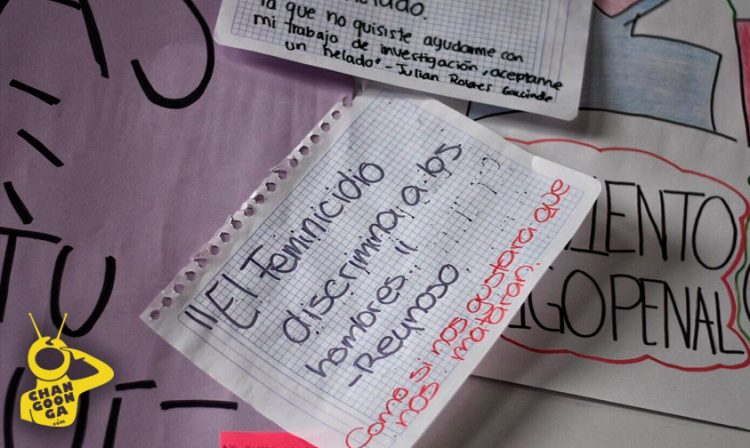 lado.
ya que no quisiste ayudarme con
mi trabajo de investigación, aceptame
un helado" - Julian
"El Feminicidio
discrimina a los
hombres"
- Reynoso
Como si nos gustara que
nos mataran.
IENTO
IGO PENAL
TU
CHAN
GOON
GA
.com